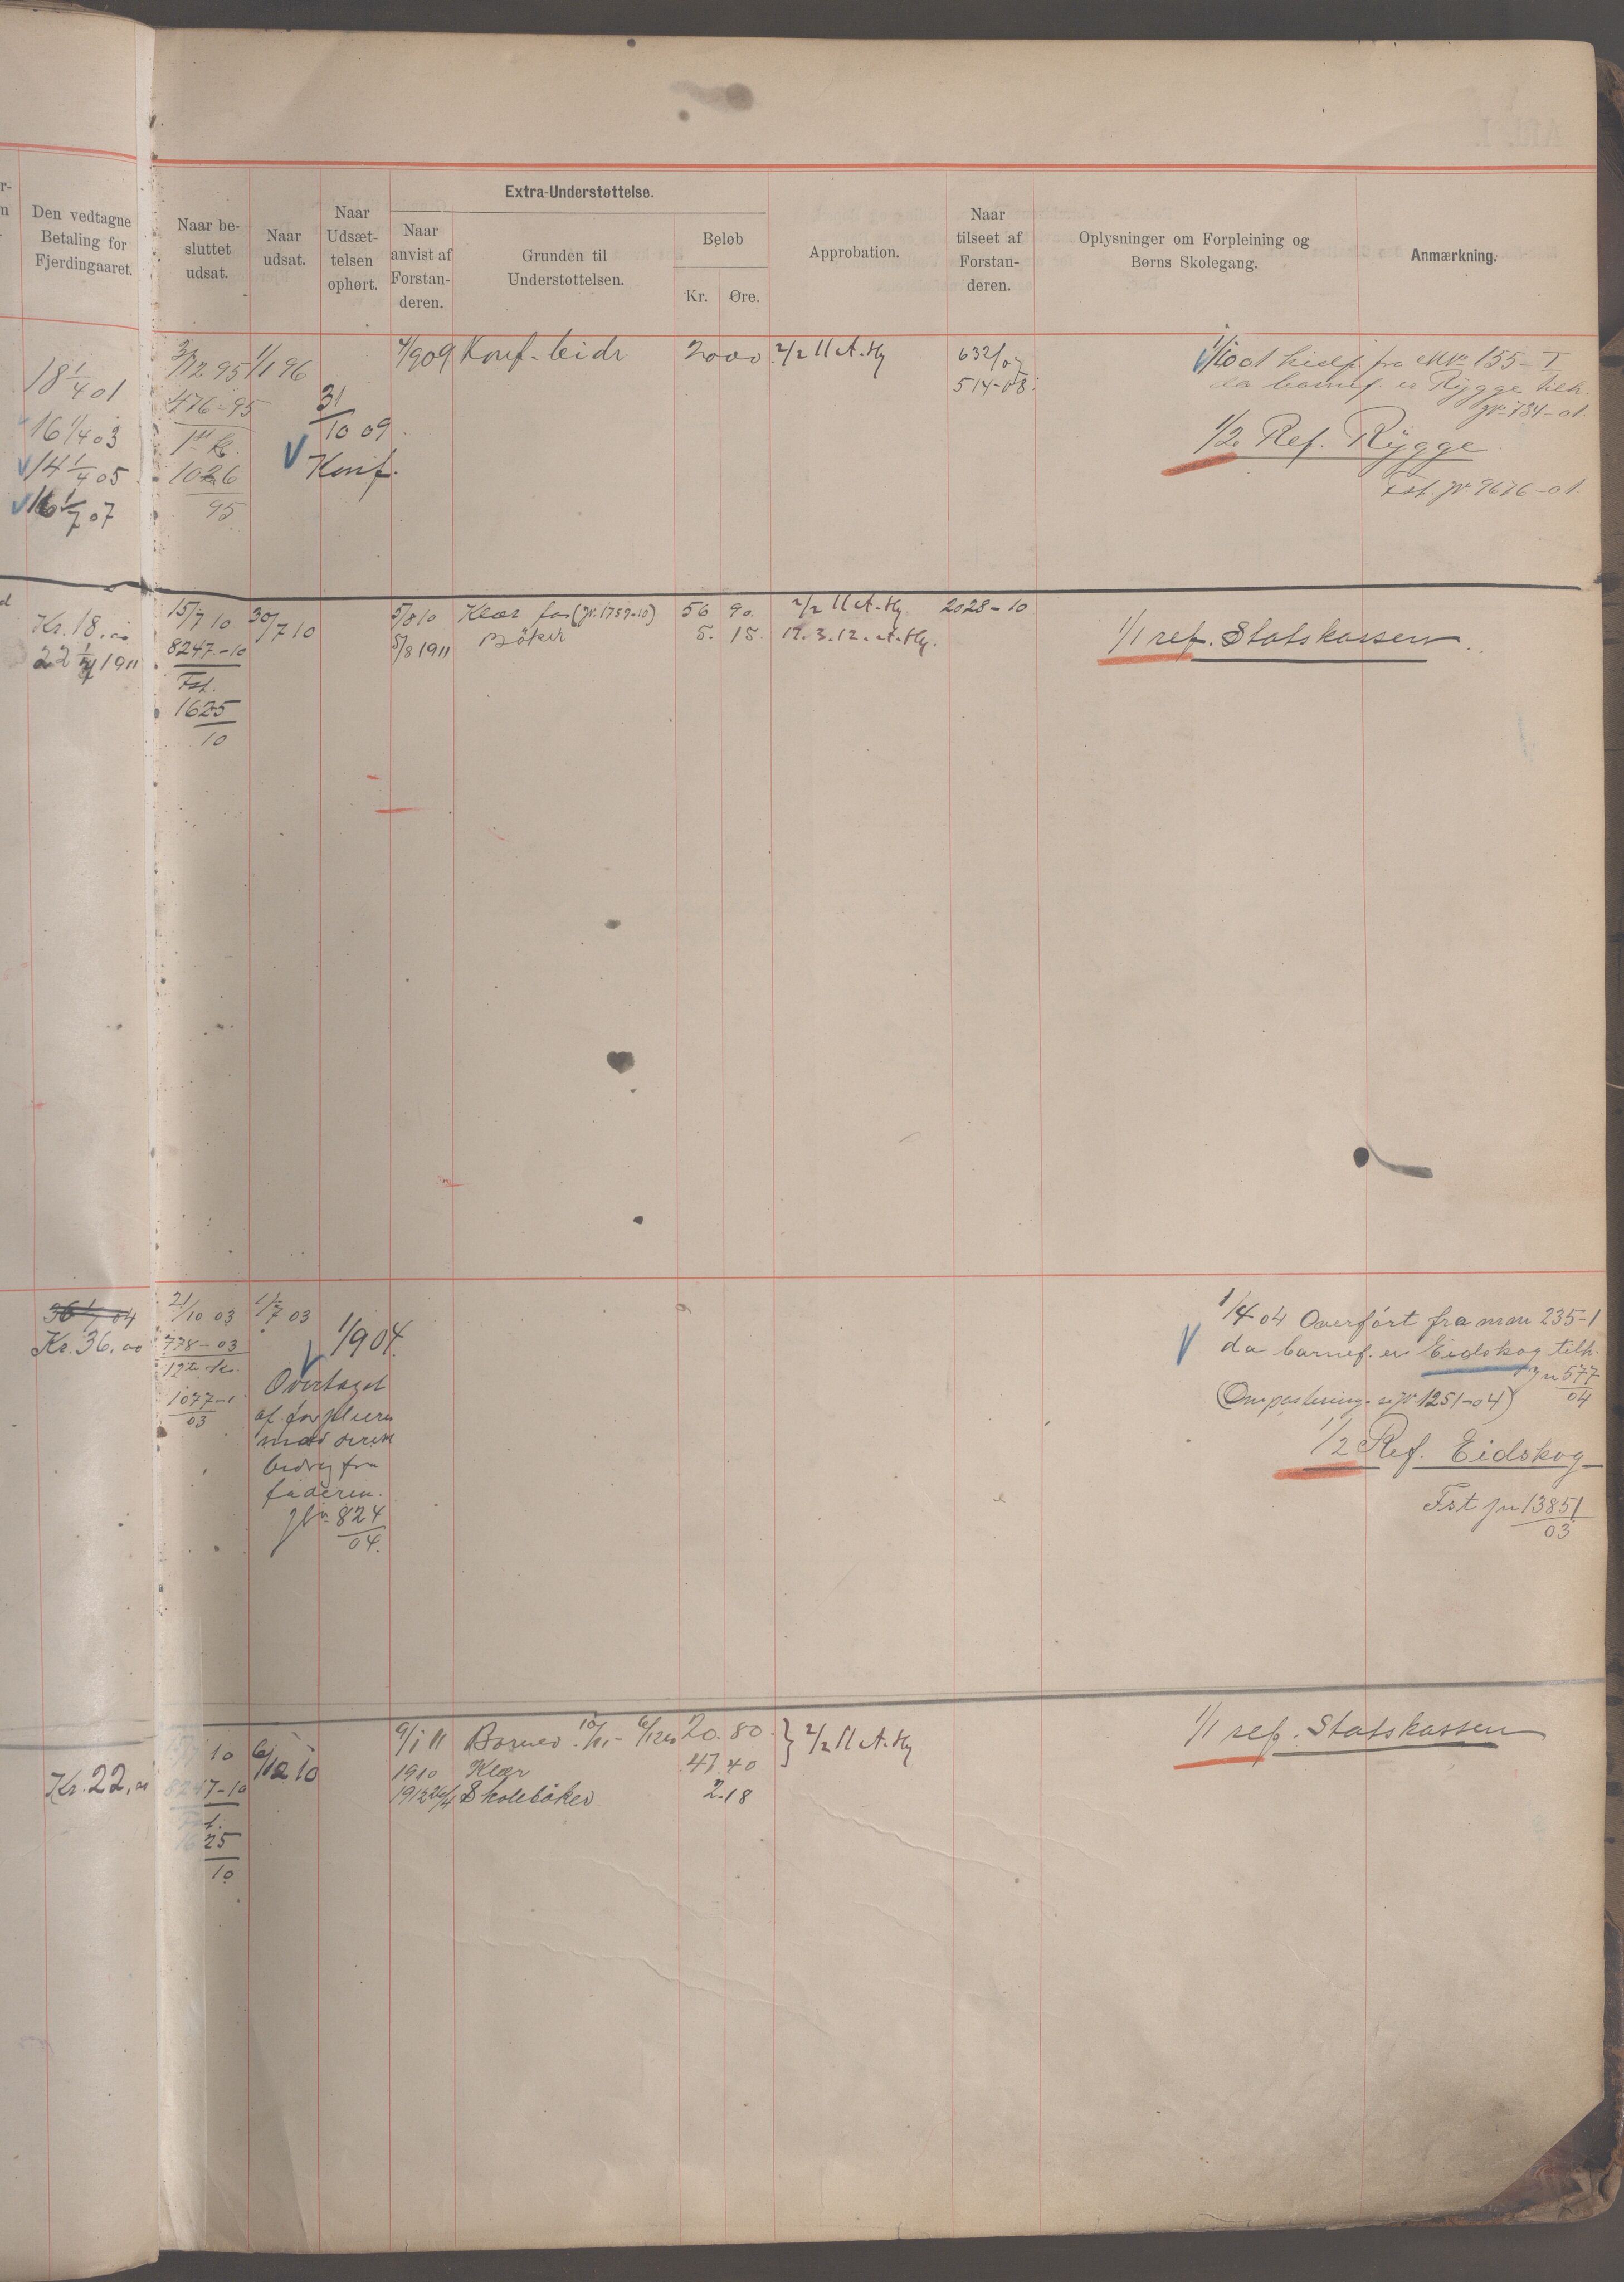 Den vedtagne
Betaling for
Fjerdingaaret.
Naar be-
sluttet
udsat.
Naar
udsat.
Naar
Udsæt-
telsen
ophørt.
Extra-Understøttelse.
Naar
anvist af
Forstan-
deren.
Grunden til
Understøttelsen.
Beløb
Kr.
Øre.
Approbation.
Naar
tilseet af
Forstan-
deren.
Oplysninger om Forpleining og
Børns Skolegang.
Anmærkning.
18 1/4 01
16 1/4 03
14 1/4 05
16 1/7 07
95 1/1 96
476-95
1026
95
31/10 09
Konf.
4/9 09 Konf. bidr. 20 00 2/2 11 A.
632/07
514-08
1/10 01 fra 155-I
da barnef. er Rygge tilh.
734-01.
1/2 Ref. Rygge
Fst. jr. 9676-01.
Kr. 18.
22 1/7 1911
15/7 10
8247-10
Fst.
1625
10
30/7 10
5/8 10 Klær (jr. 1759-10) 56 90. 2/2 11 A. 2028-10
5/8 1911 Böker 5. 15. 12.3.12. A.
1/1 ref. Statskassen
36 1/7 04
Kr. 36,00
21/10 03
778-03
1077
03
1/7 03
1/9 04.
Overtaget
af
bidrag fra
faderen.
824
04.
1/4 04 Overført fra mm 235-1
da barnef. er Eidskog tilh.
577
04
(Ompostering. jr. 1251-04)
1/2 Ref. Eidskog
Fst jn 13851
03
Kr. 22,
10
8247-10
Fst.
1625
10
6/12 10
9/1 11 20.80 2/2 11 A.
1910 Klær 47.40
1912 Skolebøker 2.18
1/1 ref. Statskassen